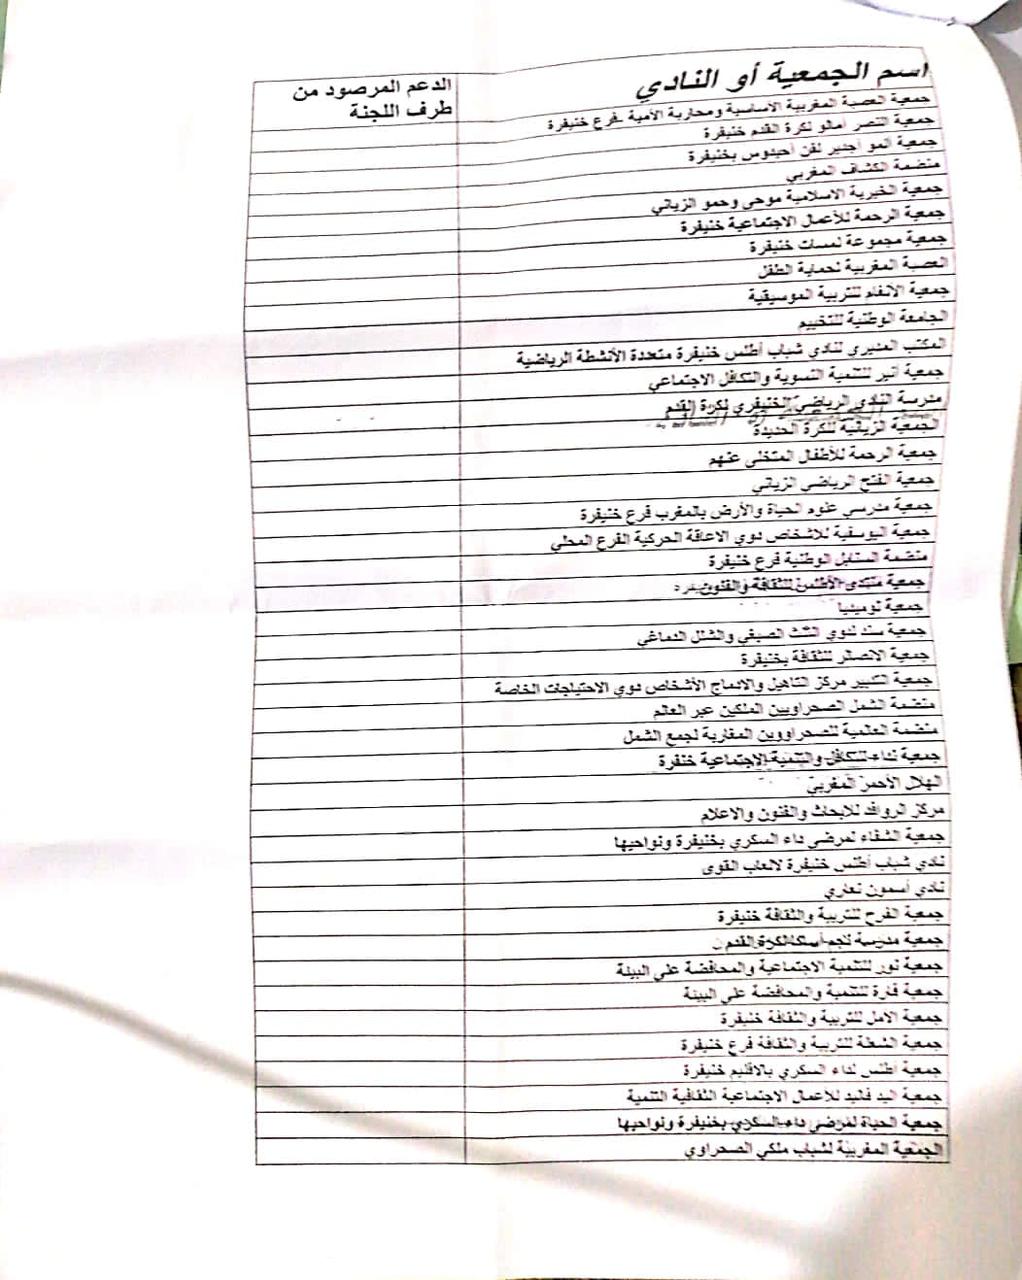 اسم الجمعية أو النادي
الدعم المرصود من
طرف اللجنة
جمعية العصبة المغربية الأساسية ومحاربة الأمية -فرع خنيفرة
جمعية النصر أمالو لكرة القدم خنيفرة
جمعية المو أجدير لفن أحيدوس بخنيفرة
منضمة الكشاف المغربي
جمعية الخيرية الاسلامية موحى وحمو الزياني
جمعية الرحمة للأعمال الاجتماعية خنيفرة
جمعية مجموعة لمسات خنيفرة
العصبة المغربية لحماية الطفل
جمعية الأنغام للتربية الموسيقية
الجامعة الوطنية للتخييم
المكتب المديري لنادي شباب أطلس خنيفرة متعددة الأنشطة الرياضية
جمعية أنير للتنمية النسوية والتكافل الاجتماعي
مدرسة النادي الرياضي الخنيفري لكرة القدم
الجمعية الزيانية للكرة الحديدة
جمعية الرحمة للأطفال المتخلى عنهم
جمعية الفتح الرياضي الزياني
جمعية مدرسي علوم الحياة والأرض بالمغرب فرع خنيفرة
جمعية اليوسفية للاشخاص دوي الاعاقة الحركية الفرع المحلي
منضمة السنابل الوطنية فرع خنيفرة
جمعية منتدى الأطلس للثقافة والفنون
جمعية نوميديا
جمعية سند لدوي الثلث الصبغي والشلل الدماغي
جمعية الانصار للثقافة بخنيفرة
جمعية الكبير مركز التاهيل والادماج الأشخاص دوي الاحتياجات الخاصة
منضمة الشمل الصحراويين الملكين عبر العالم
منضمة العالمية للصحراووين المغاربة لجمع الشمل
جمعية نداء للتكافل والتنمية الاجتماعية خنفرة
الهلال الأحمر المغربي
مركز الروافد للابحاث والفنون والاعلام
جمعية الشفاء لمرضى داء السكري بخنيفرة ونواحيها
نادي شباب أطلس خنيفرة لالعاب القوى
نادي أسمون نعاري
جمعية الفرح للتربية والثقافة خنيفرة
جمعية مدرسة نجم أسكا لكرة القدم
جمعية نور للتنمية الاجتماعية والمحافضة على البيئة
جمعية قارة للتنمية والمحافضة على البيئة
جمعية الامل للتربية والثقافة خنيفرة
جمعية الشعلة للتربية والثقافة فرع خنيفرة
جمعية أطلس لداء السكري بالاقليم خنيفرة
جمعية اليد فاليد للأعمال الاجتماعية الثقافية التنمية
جمعية الحياة لمرضى داء السكري بخنيفرة ونواحيها
الجمعية المغربية لشباب ملكي الصحراوي